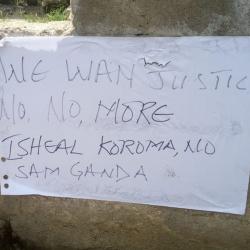 WE WAN JUSTIC
NO, NO, MORE
ISHEAL KOROMA, NO
SAM GANDA NO.